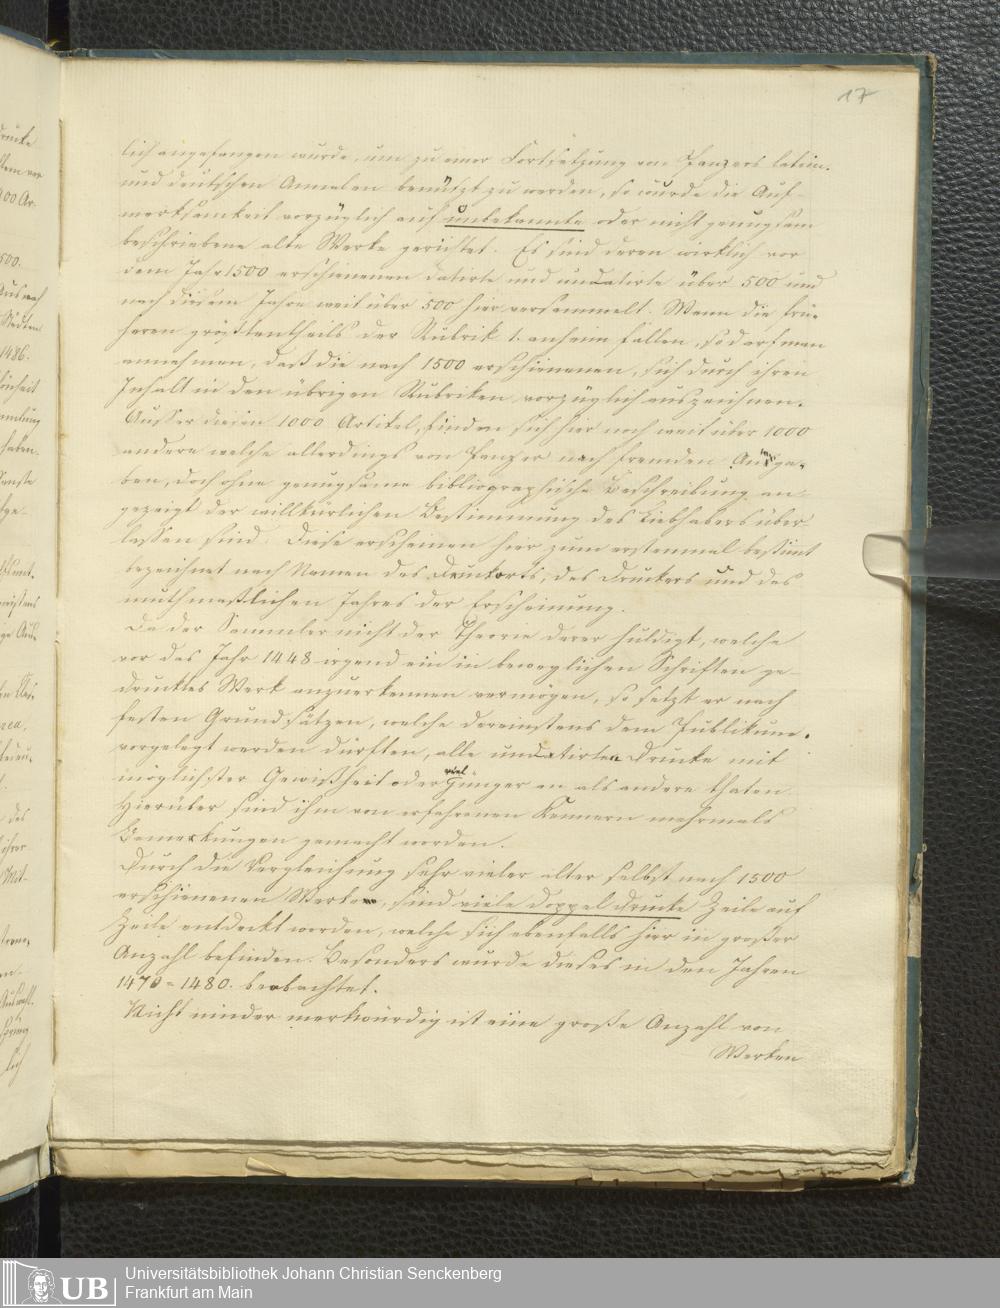 17
lich angefangen wurde, um zu einer Fortsetzung von Panzers latein.
und deutschen Annalen benützt zu werden, so wurde die Auf-
merksamkeit vorzüglich auf unbekannte oder nicht genugsam
beschriebene alte Werke gerichtet. Es sind deren wirklich vor
dem Jahr 1500 erschienenen datirte und undatirte über 500 und
nach diesem Jahre weit über 500 hier versammelt. Wenn die frü-
heren größtentheils der Rubrik 1. anheim fallen, so darf man
annehmen, daß die nach 1500 erschienenen, sich durch ihren
Inhalt in den übrigen Rubriken vorzüglich auszeichnen.
Ausser diesen 1000 Artikel, finden sich hier noch weit über 1000
andere welche allerdings von Panzer nach fremden Anga-
ben, doch ohne genugsame bibliographische Beschreibung an-
gezeigt der willkürlichen Bestimmung des Liebhabers über-
lassen sind. Diese erscheinen hier zum erstenmal bestimt
bezeichnet nach Namen des Druckorts, des Druckers und des
muthmaßlichen Jahres der Erscheinung.
Da der Sammler nicht der Theorie derer huldigt, welche
vor das Jahr 1448 irgend ein in beweglichen Schriften ge-
drucktes Werk anzuerkennen vermögen, so setzt er nach
festen Grundsätzen, welche dereinstens dem Publikum
vorgelegt werden dürften, alle undatirten Drucke mit
möglichster Gewißheit oder viel jünger an als andere thaten
Hierüber sind ihm von erfahrenen Kennern mehrmals
Bemerkungen gemacht worden.
Durch die Vergleichung sehr vieler alter selbst nach 1500
erschienenen Werke, sind viele doppel drucke Zeile auf
Zeile entdeckt worden, welche sich ebenfalls hier in großer
Anzahl befinden. Besonders wurde dieses in den Jahren
1470 = 1480. beobachtet.
Nicht minder merkwürdig ist eine große Anzahl von
Werken
UB
Universitätsbibliothek Johann Christian Senckenberg
Frankfurt am Main